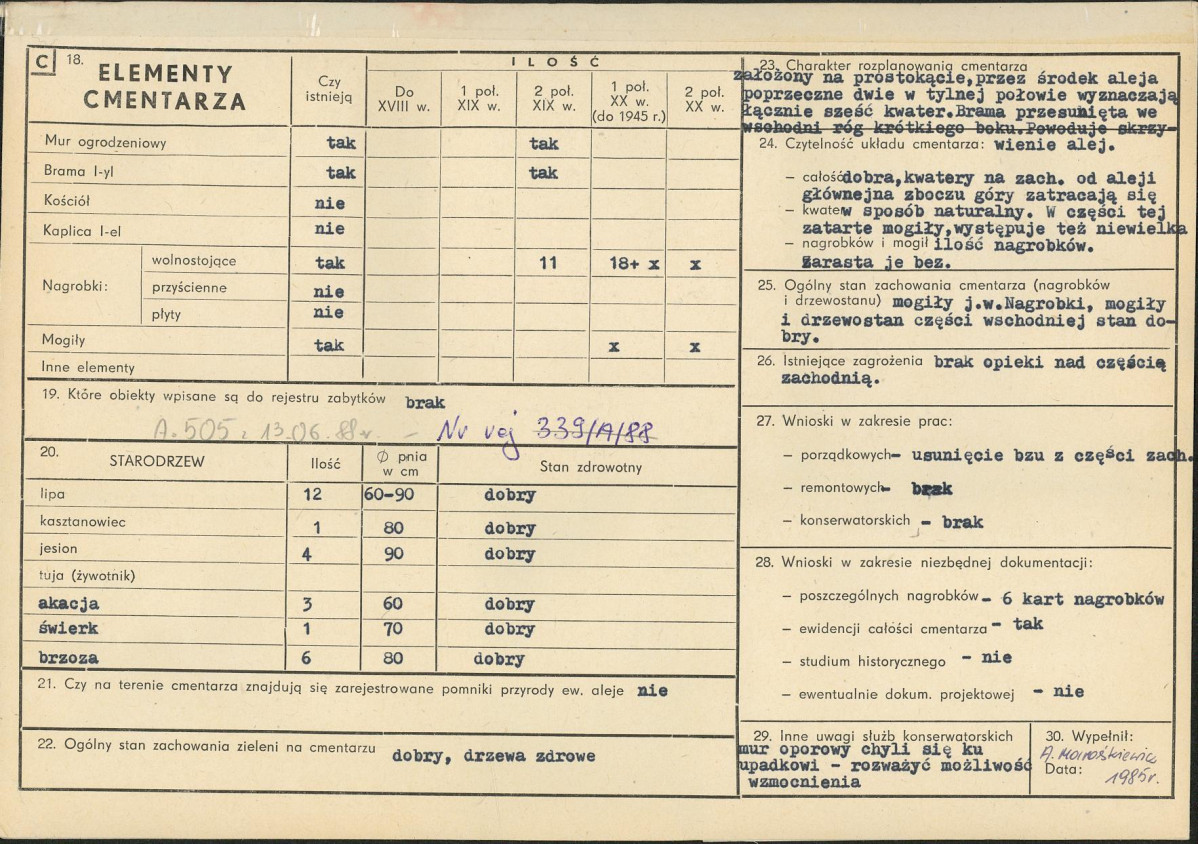 C 18. ELEMENTY CMENTARZA
Czy istnieją
ILOŚĆ
Do XVIII w.
1 poł. XIX w.
2 poł. XIX w.
1 poł. XX w. (do 1945 r.)
2 poł. XX w.
Mur ogrodzeniowy tak tak
Brama I-yl tak tak
Kościół nie
Kaplica I-el nie
Nagrobki:
wolnostojące tak 11 18+ x x
przyścienne nie
płyty nie
Mogiły tak x x
Inne elementy
19. Które obiekty wpisane są do rejestru zabytków brak
A. 505 z 13.06.88 r. – Nr rej 339/A/88
20. STARODRZEW Ilość Ø pnia w cm Stan zdrowotny
lipa 12 60-90 dobry
kasztanowiec 1 80 dobry
jesion 4 90 dobry
tuja (żywotnik)
akacja 3 60 dobry
świerk 1 70 dobry
brzoza 6 80 dobry
21. Czy na terenie cmentarza znajdują się zarejestrowane pomniki przyrody ew. aleje nie
22. Ogólny stan zachowania zieleni na cmentarzu dobry, drzewa zdrowe
23. Charakter rozplanowania cmentarza
założony na prostokącie,przez środek aleja
poprzeczne dwie w tylnej połowie wyznaczają
łącznie sześć kwater.Brama przesunięta we
wschodni róg krótkiego boku.Powoduje skrzy-
24. Czytelność układu cmentarza: wienie alej.
– całość dobra,kwatery na zach. od aleji
głównejna zboczu góry zatracają się
– kwater w sposób naturalny. W części tej
zatarte mogiły,występuje też niewielka
– nagrobków i mogił ilość nagrobków.
Zarasta je bez.
25. Ogólny stan zachowania cmentarza (nagrobków
i drzewostanu) mogiły j.w.Nagrobki, mogiły
i drzewostan części wschodniej stan do-
bry.
26. Istniejące zagrożenia brak opieki nad częścią
zachodnią.
27. Wnioski w zakresie prac:
– porządkowych- usunięcie bzu z części zach.
– remontowych- brak
– konserwatorskich - brak
28. Wnioski w zakresie niezbędnej dokumentacji:
– poszczególnych nagrobków - 6 kart nagrobków
– ewidencji całości cmentarza - tak
– studium historycznego - nie
– ewentualnie dokum. projektowej - nie
29. Inne uwagi służb konserwatorskich
mur oporowy chyli się ku
upadkowi - rozważyć możliwość
wzmocnienia
30. Wypełnił:
A.
Data: 1985r.